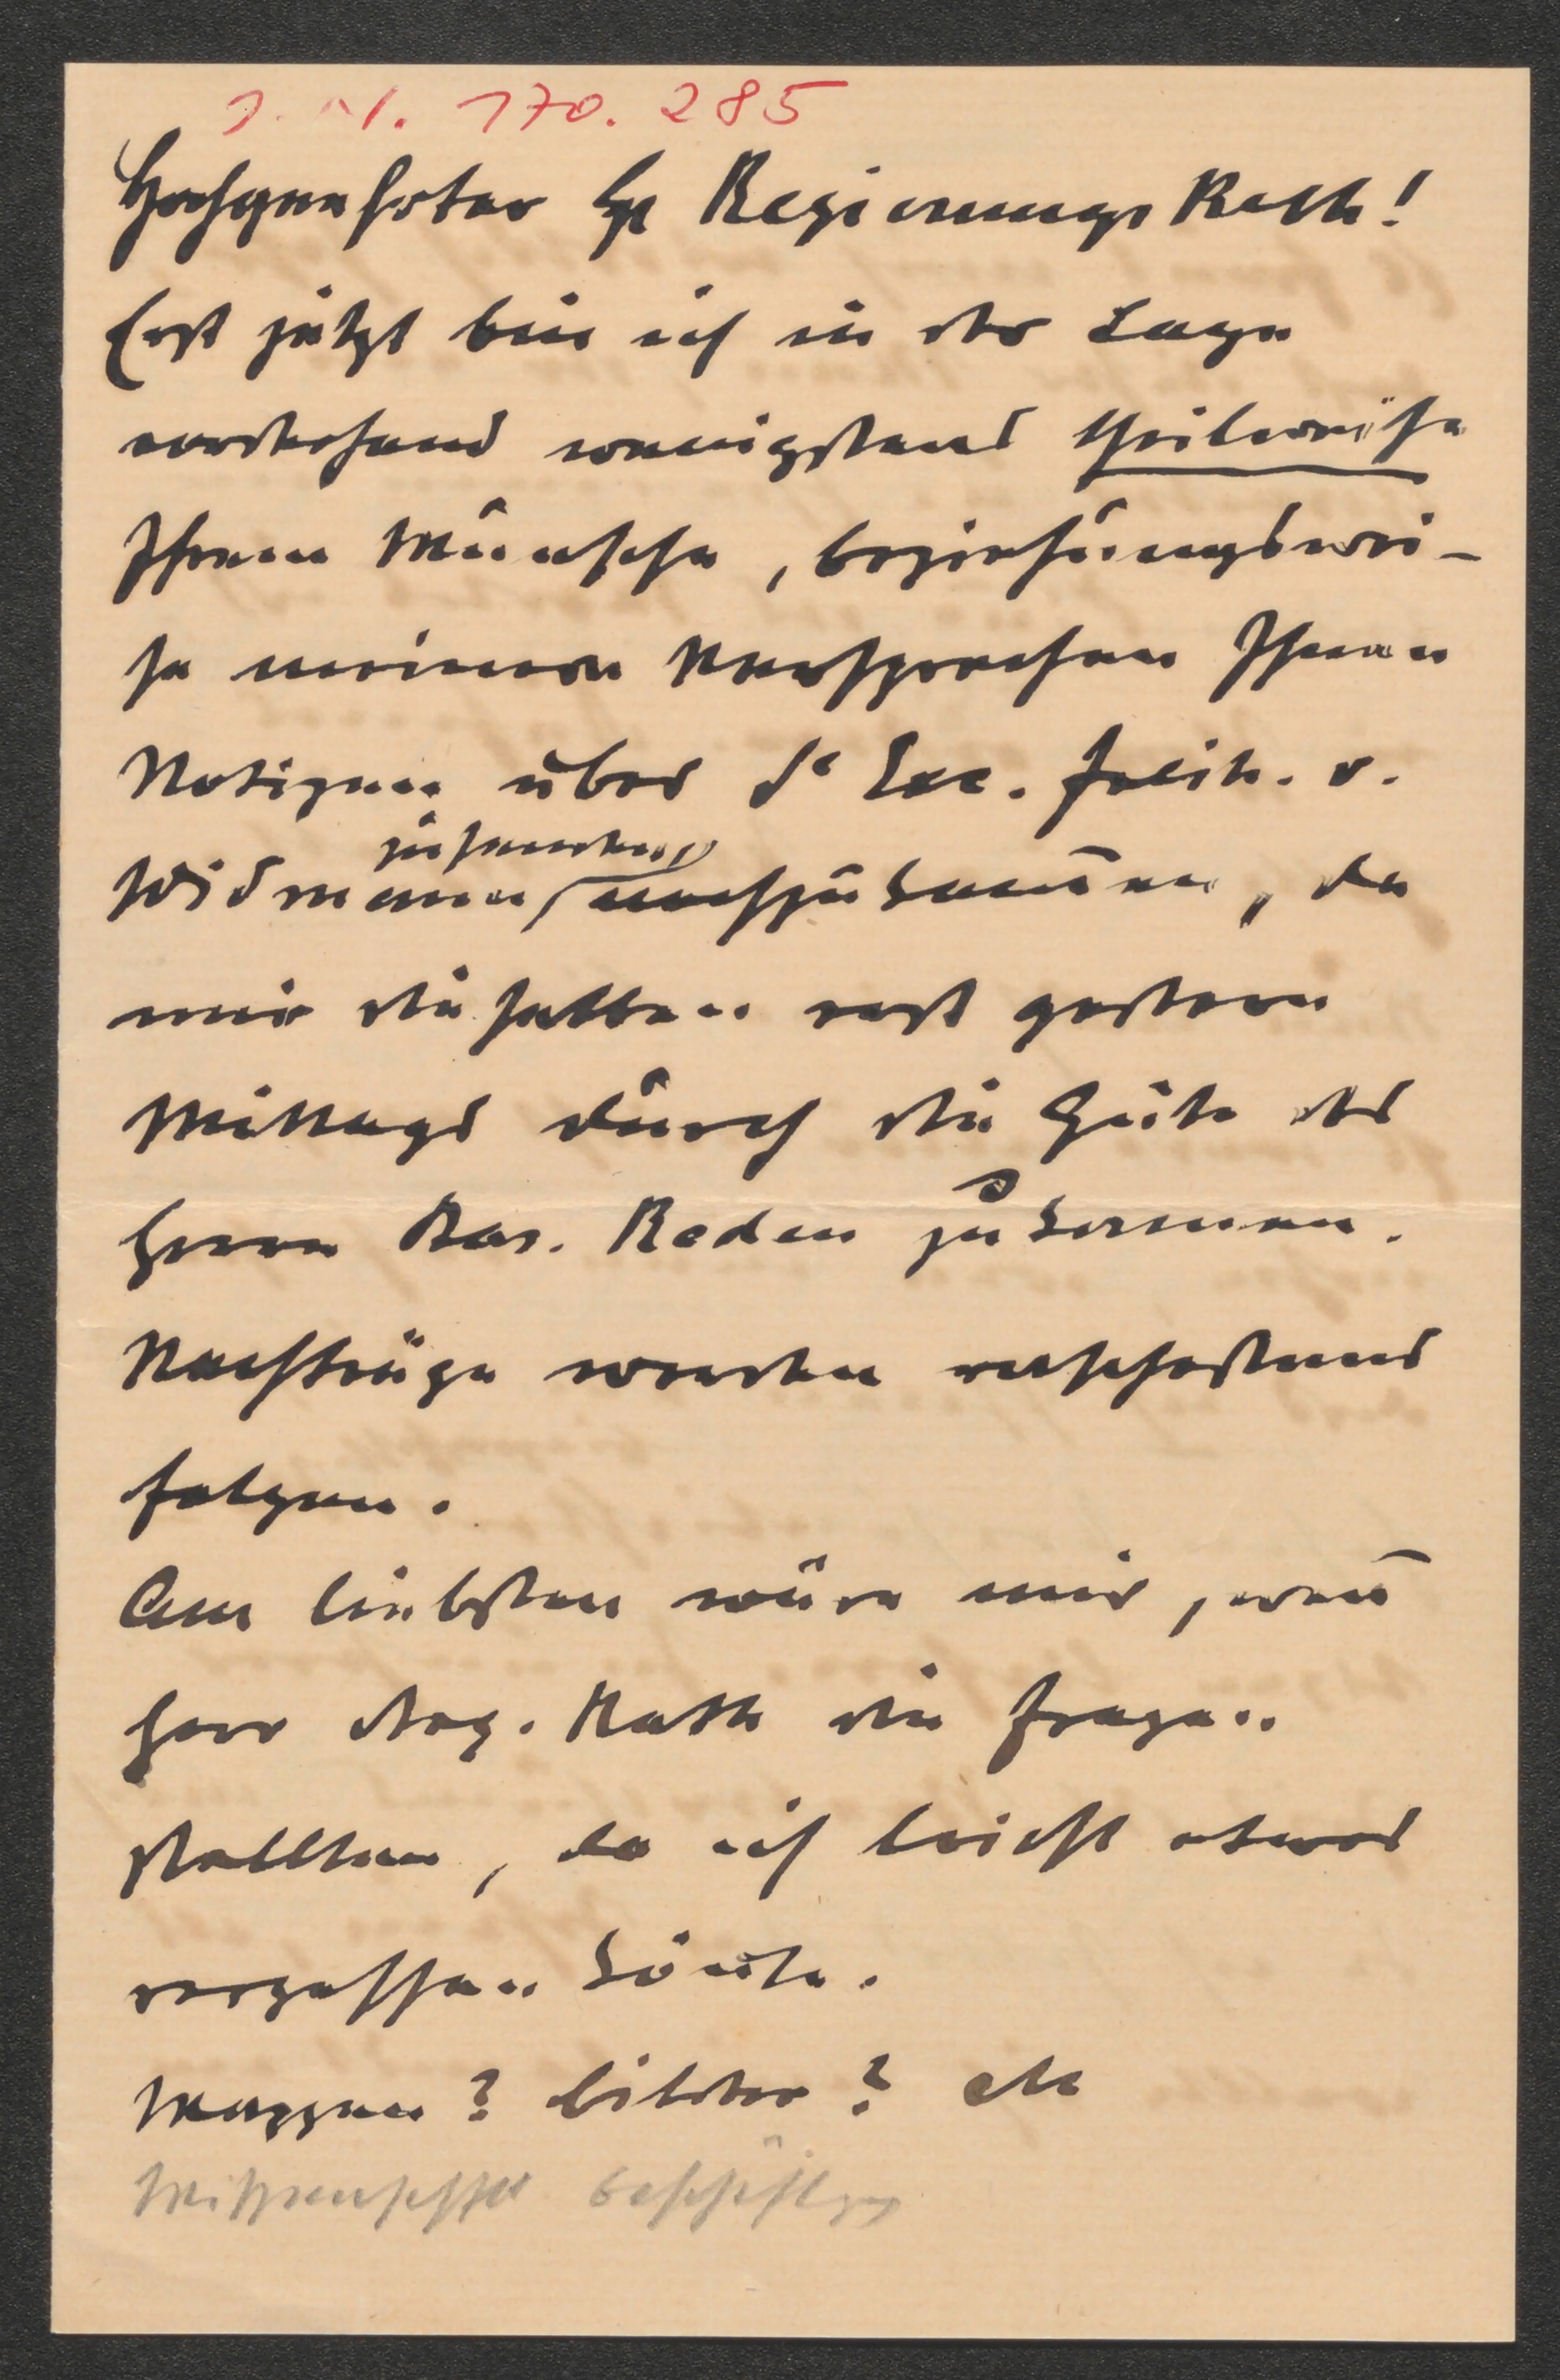 I. N. 170.285
Hochgeehrter H. Regierungs Rath!
Erst jetzt bin ich in der Lage
vorstehend wenigstens theilweise
Ihrem Wunsche, beziehungswei-
se meinem Versprechen Ihnen
Notizen über Sr Exc. Freih. v.
Widmann nachzukom̄en, da
zusenden
mir dieselben erst gestern
Mittags durch die Güte des
Herrn Bar. Reden zukamen.
Nachträge werden ehestens
folgen.
Am liebsten wäre mir, wen̄
Herr Reg. Rath die Fragen
stellten, da ich leicht etwas
vergessen kön̄te.
Wappen? Bilder? etc